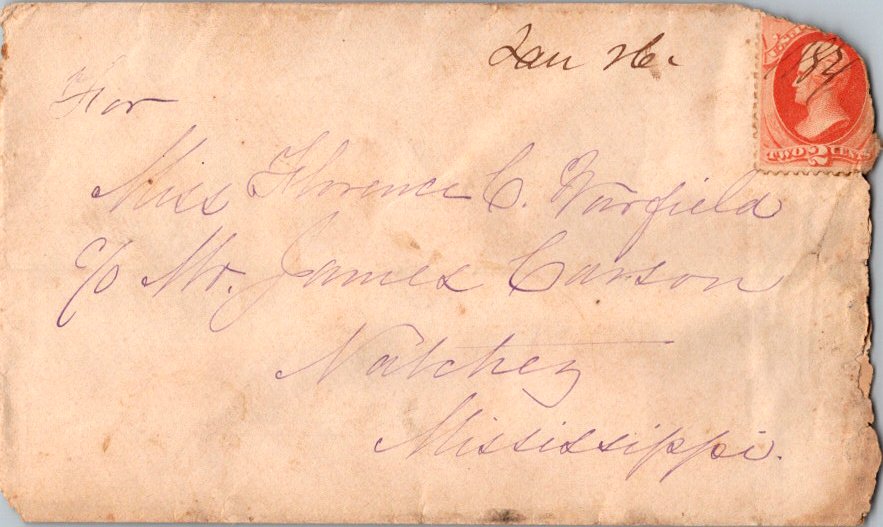 Jan 26.
187
TWO 2 CENTS
For
Miss Florence C. Warfield
c/o Mr. James Carson
Natchez
Mississippi.